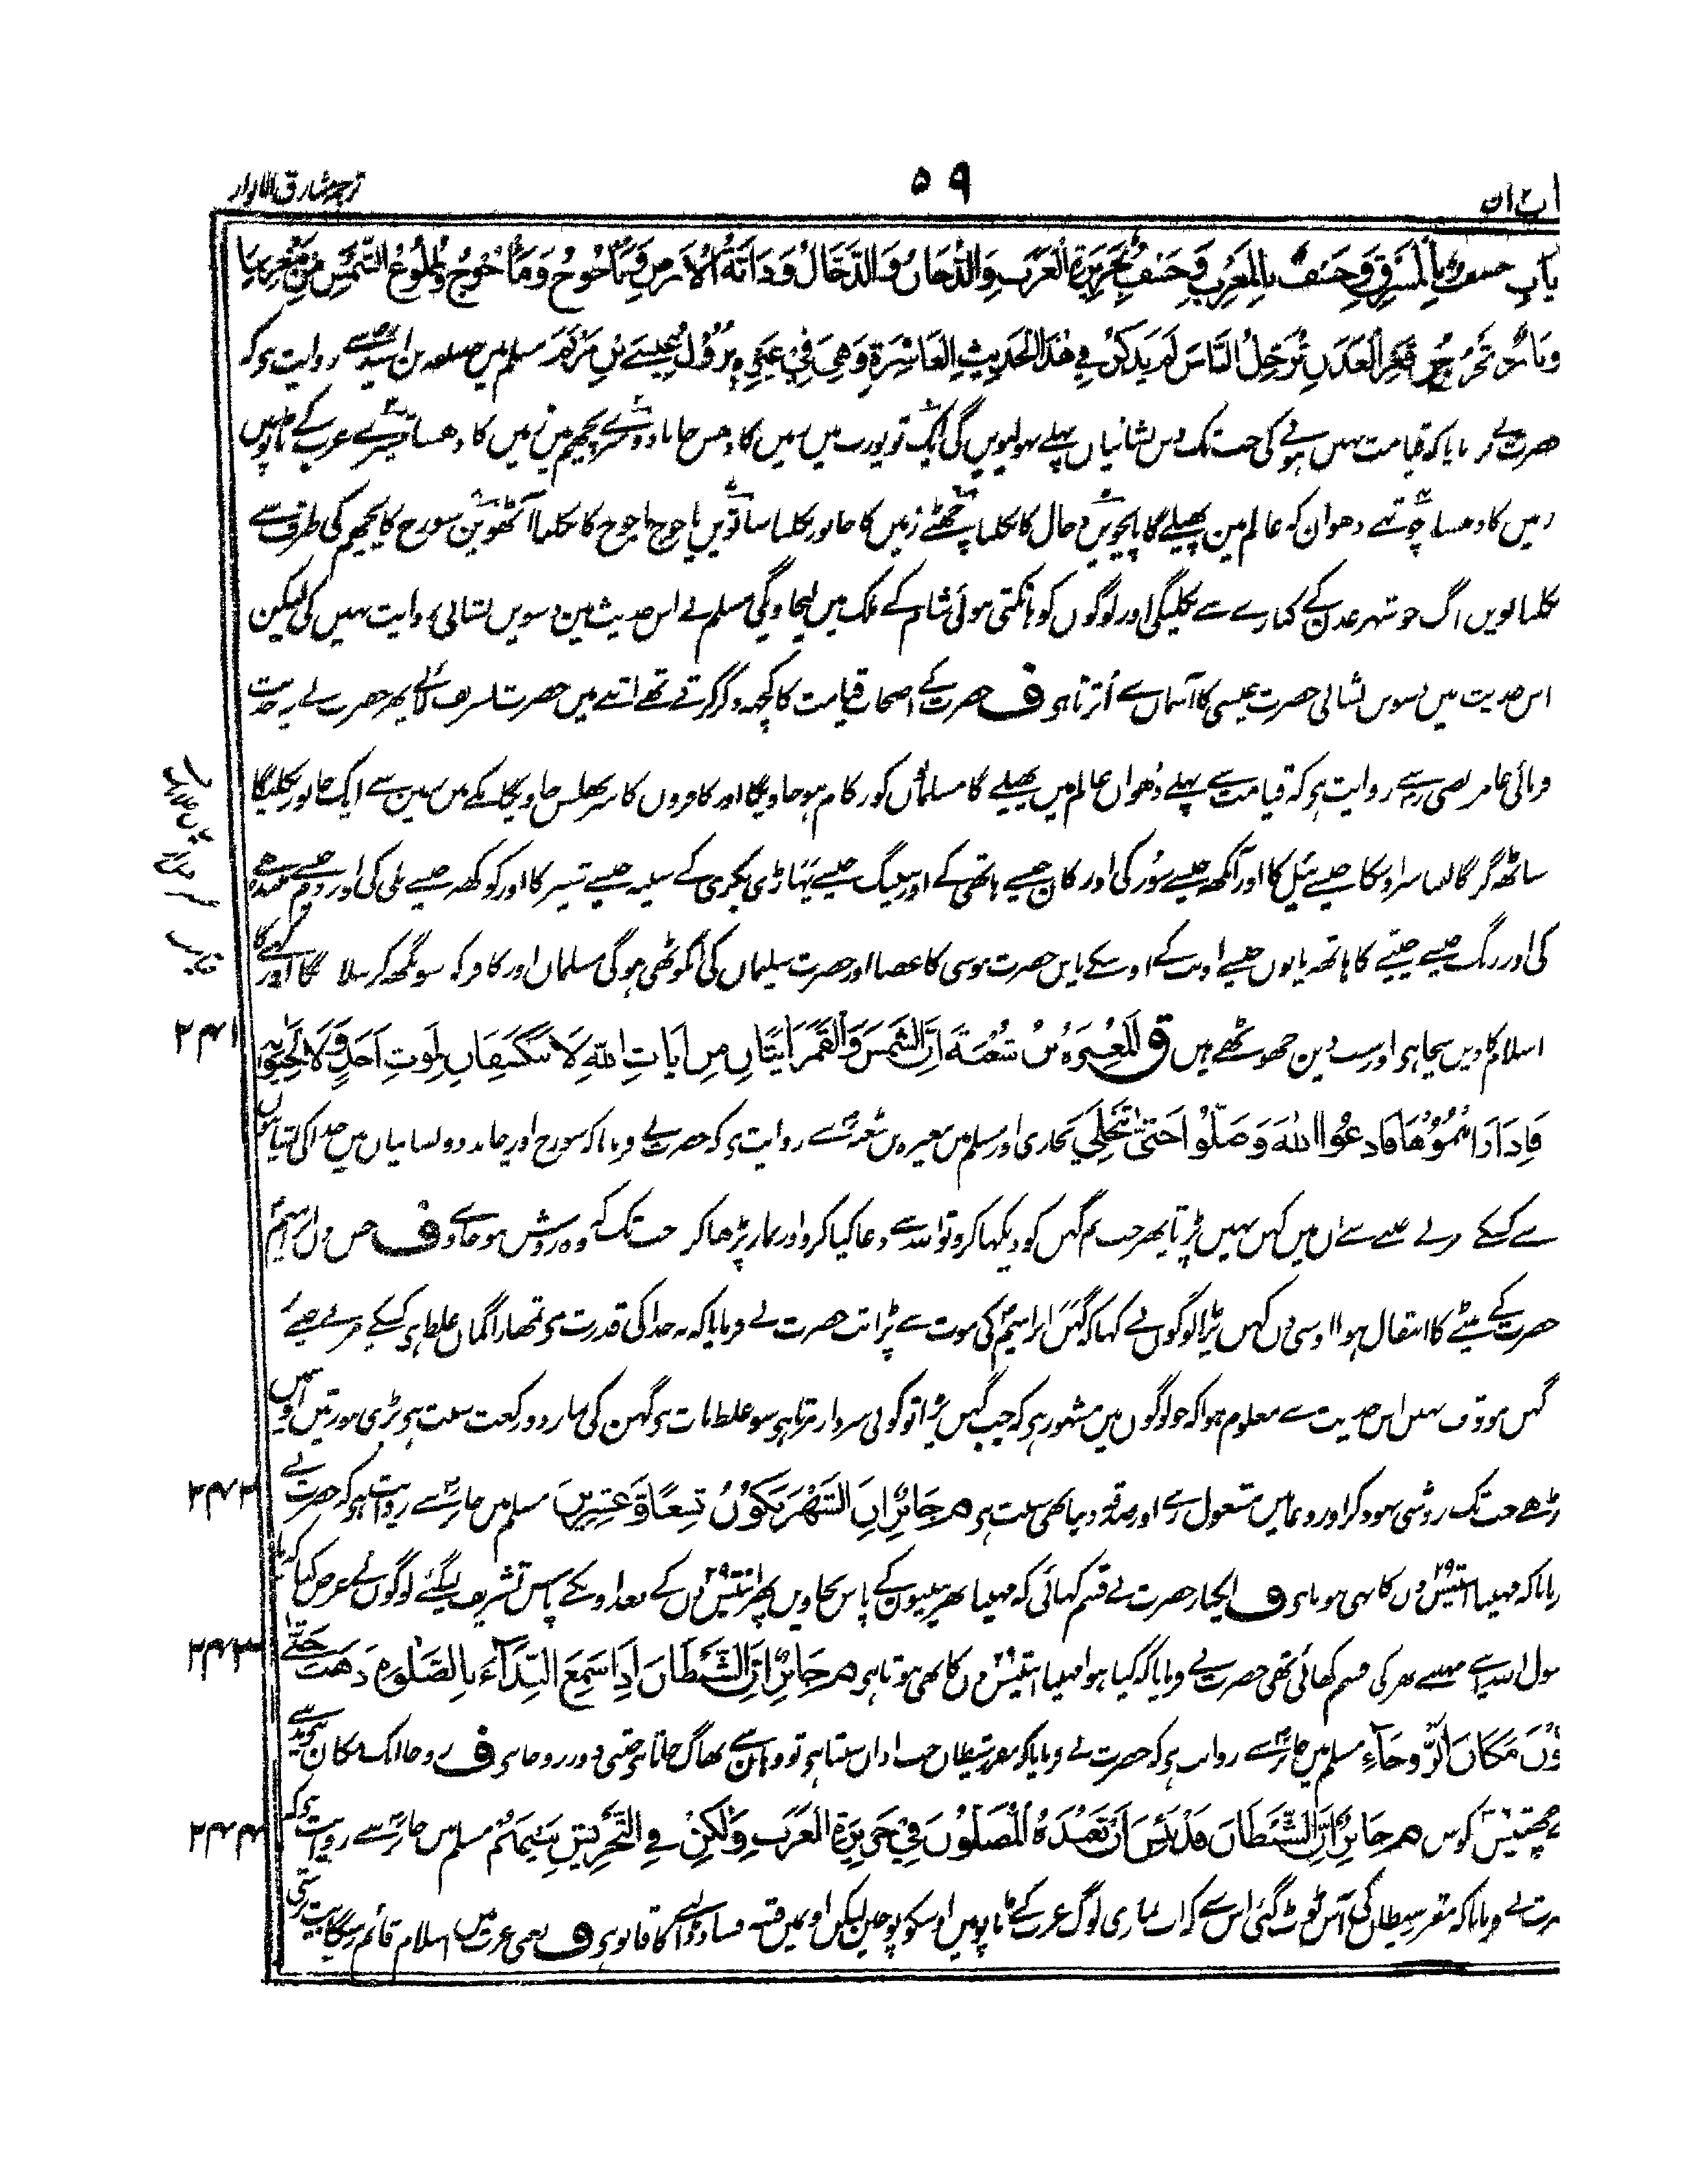 ترجمہ مشارق الانوار
۵۹
باب ان
یات خسف بالمشرق وخسف بالمغرب وخسف بجزيرة العرب والدخان والدجال ودابة الارض وياجوج وماجوج وطلوع الشمس من مغربها
ونار تخرج من قعر العدن ترحل الناس لم يذكر في هذا الحديث العاشرة وهي في غيره نزول عيسى بن مريم مسلم میں حذیفہ بن اسید سے روایت ہی کہ
حضرت نے فرمایا کہ قیامت نہیں ہونے کی جب تک دس نشانیاں پہلے نہولیویں گی ایک تو پورب میں زمین کا دھس جانا دوسرے پچھم میں زمیں کا دھسنا تیسرے عرب کے ٹاپو میں
زمیں کا دھسنا چوتھے دھوان کہ عالم مین پھیلے گا پانچویں دجال کا نکلنا چھٹے زمیں کا جانور نکلنا ساتویں یاجوج ماجوج کا نکلنا آٹھویں سورج کا پچھم کی طرف سے
نکلنا نویں آگ جو شہر عدن کے کنارے سے نکلیگی اور لوگوں کو ہانکتی ہوئی شام کے ملک میں لیجاویگی مسلم نے اس حدیث مین دسویں نشانی روایت نہیں کی لیکن
اس حدیث میں دسویں نشانی حضرت عیسی کا آسماں سے اُترنا ہی ف حضرت کے اصحاب قیامت کا کچھ ذکر کرتے تھے اتنے میں حضرت تشریف لائے پھر حضرت نے یہ حدیث
فرمائی عامر رضی سے روایت ہی کہ قیامت سے پہلے دُھواں عالم میں پھیلے گا مسلماں کو زکام ہو جاویگا اور کافروں کا سر جھلس جاویگا مکے میں زمین سے ایک جانور نکلیگا
ساٹھ گز کا لنبا سر اوسکا جیسے بیل کا اور آنکھ جیسے سور کی اور کان جیسے ہاتھی کے اور سینگ جیسے پہاڑی بکری کے سینہ جیسے شیر کا اور کوکھ جیسے بلی کی اور دم جیسے مینڈھے
کی اور رنگ جیسے چیتے کا ہاتھ پانوں جیسے اونٹ کے اوسکے پاس حضرت موسی کا عصا اور حضرت سلیماں کی انگوٹھی ہوگی مسلماں اور کافر کو سونگھ کر بتلاوےگا اور کہے گا
اسلام کا دیں سچا ہی اور سب دین جھوٹھے ہیں ق المغيرة بن شعبة ان الشمس والقمر آيتان من آيات الله لا ينكسفان لموت احد ولا لحيوته
۲۴۱
فاذا رأيتموها فادعوا الله وصلوا حتى تنجلي بخاری اور مسلم میں مغیرہ بن شعبہ سے روایت ہی کہ حضرت نے فرمایا کہ سورج اور چاند دو نشانیاں ہیں خدا کی نشانیوں
سے کسی کے مرنے جینے سے ان میں گہن نہیں پڑتا پھر جب تم گہن کو دیکھا کرو تو اللہ سے دعا کیا کرو اور نماز پڑھا کرو جب تک کہ وہ روشن ہو جاوے ف جس دن ابراہیم
حضرت کے بیٹے کا انتقال ہوا اوسی دن گہن پڑا لوگوں نے کہا کہ گہن ابراہیم کی موت سے پڑا تب حضرت نے فرمایا کہ یہ خدا کی قدرت ہی تمھارا گمان غلط ہی کسی کے مرنے جینے
گہن موقوف نہیں اس حدیث سے معلوم ہوا کہ جو لوگوں میں مشہور ہی کہ جب گہن پڑا تو کوئی سردار مرتا ہی سو غلط بات ہی گہن کی نماز دو رکعت سنت ہی بڑی سورتیں اوس میں
پڑھے جب تک روشنی ہو ذکر اور دعا میں مشغول رہے اور صدقہ دینا بھی سنت ہی م جابر ان الشهر يكون تسعا وعشرين مسلم میں جابر سے روایت ہی کہ حضرت نے
۲۴۲
فرمایا کہ مہینا انتیس دن کا بھی ہوتا ہی ف ایکبار حضرت نے قسم کھائی کہ مہینا بھر بیبیون کے پاس نجاویں پھر انتیس دن کے بعد اونکے پاس تشریف لیگئے لوگوں نے عرض کیا کہ یا
رسول اللہ آپ نے مہینے بھر کی قسم کھائی تھی حضرت نے فرمایا کہ کیا ہوا مہینا انتیس دن کا بھی ہوتا ہی م جابر ان الشيطان اذا سمع النداء بالصلوة ذهب حتى
۲۴۳
يكون مكان الروحاء مسلم میں جابر سے روایت ہی کہ حضرت نے فرمایا کہ مقرر شیطان جب اذان سنتا ہی تو وہاں سے بھاگ جاتا ہی جتنی دور روحا ہی ف روحا ایک مکان ہی مدینے سے
چھتیس کوس م جابر ان الشيطان قد يئس ان يعبده المصلون في جزيرة العرب ولكن في التحريش بينهم مسلم میں جابر سے روایت ہی کہ
۲۴۴
حضرت نے فرمایا کہ مقرر شیطان کی آس ٹوٹ گئی اس سے کہ اب نمازی لوگ عرب کے ٹاپو میں اوسکو پوجیں لیکن اون میں فتنہ فساد ڈالنے کا قابو ہی ف یعنی عرب میں اسلام قائم رہیگا بت پرستی